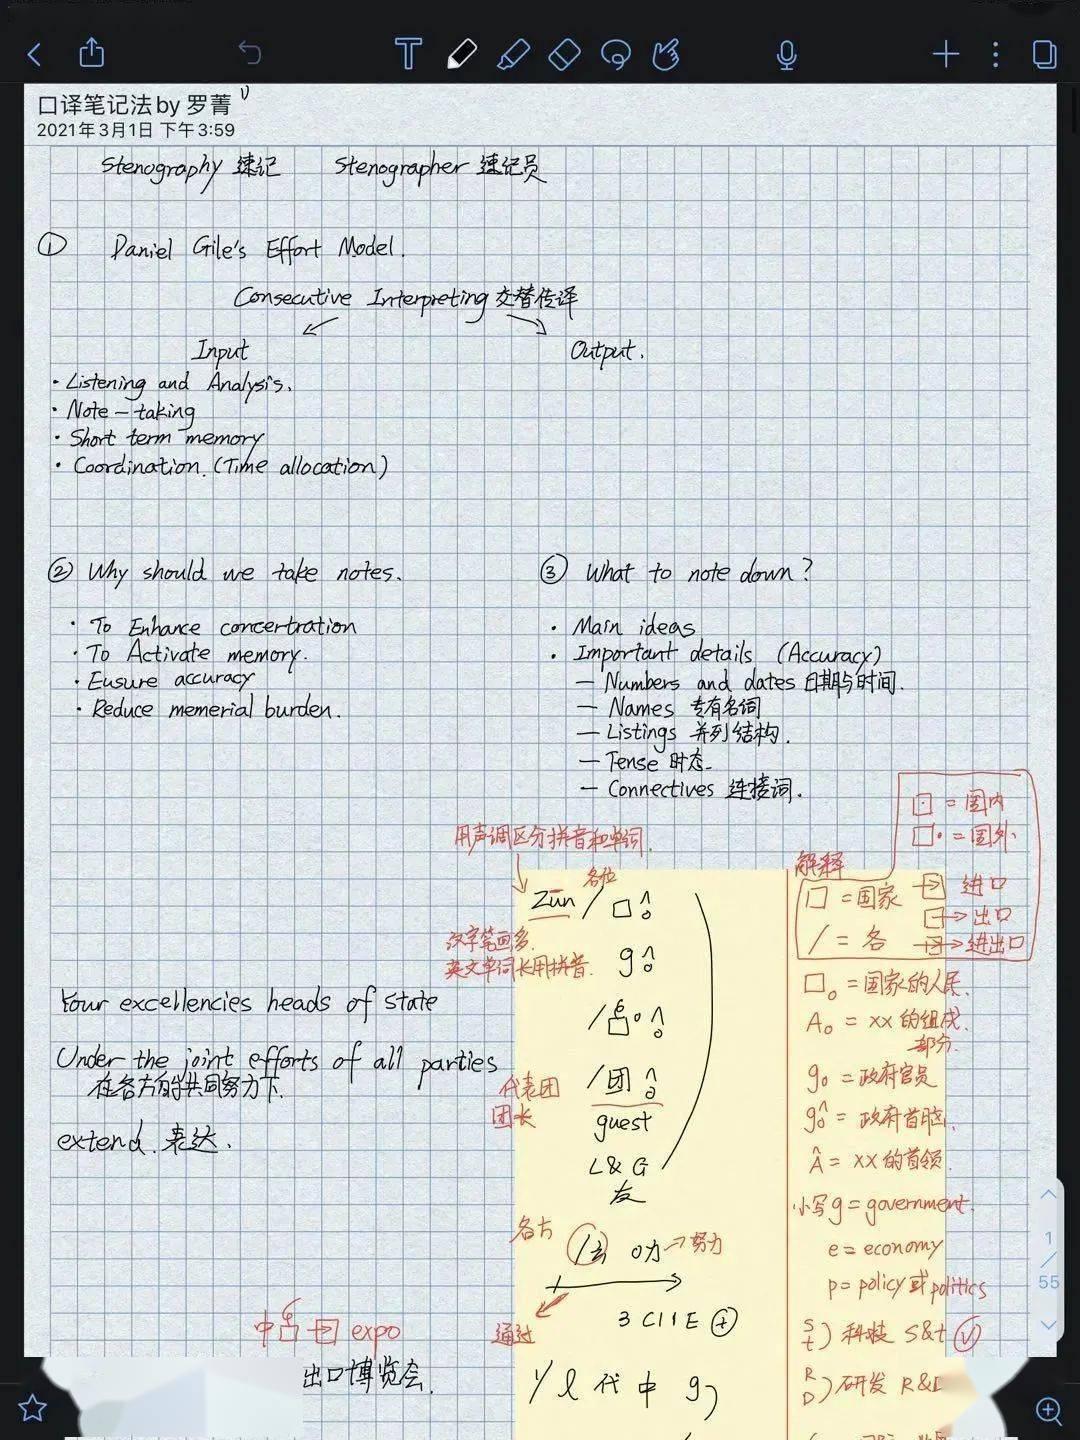 口译笔记法by 罗菁
2021年3月1日 下午3:59
Stenography 速记 Stenographer 速记员
① Daniel Gile's Effort Model.
Consecutive Interpreting 交替传译
Input
Output.
· Listening and Analysis.
· Note-taking
· Short term memory
· Coordination. (Time allocation)
② Why should we take notes.
· To Enhance concertration
· To Activate memory.
· Eusure accuracy
· Reduce memerial burden.
③ What to note down?
· Main ideas
· Important details (Accuracy)
— Numbers and dates 日期与时间.
— Names 专有名词
— Listings 并列结构.
— Tense 时态.
— Connectives 连接词.
用声调区分拼音和单词.
各位
Zūn /
汉字笔画多.
英文单词长用拼音.
g
/团
代表团
团长
guest
L&G
友
各方
力→努力
通过
3 CIIE
代 中 g
Your excellencies heads of state
Under the joint efforts of all parties
在各方的共同努力下.
extend. 表达.
中 expo
出口博览会.
解释
□ = 国内
□· = 国外
□ = 国家
/ = 各
进口
出口
进出口
□o = 国家的人民.
Ao = xx的组成.
部分.
go = 政府官员
= 政府首脑.
Â = xx的首领.
小写 g = government.
e = economy
p = policy 或 politics
S
t ) 科技 S&t
R
D ) 研发 R&D
1
/
55